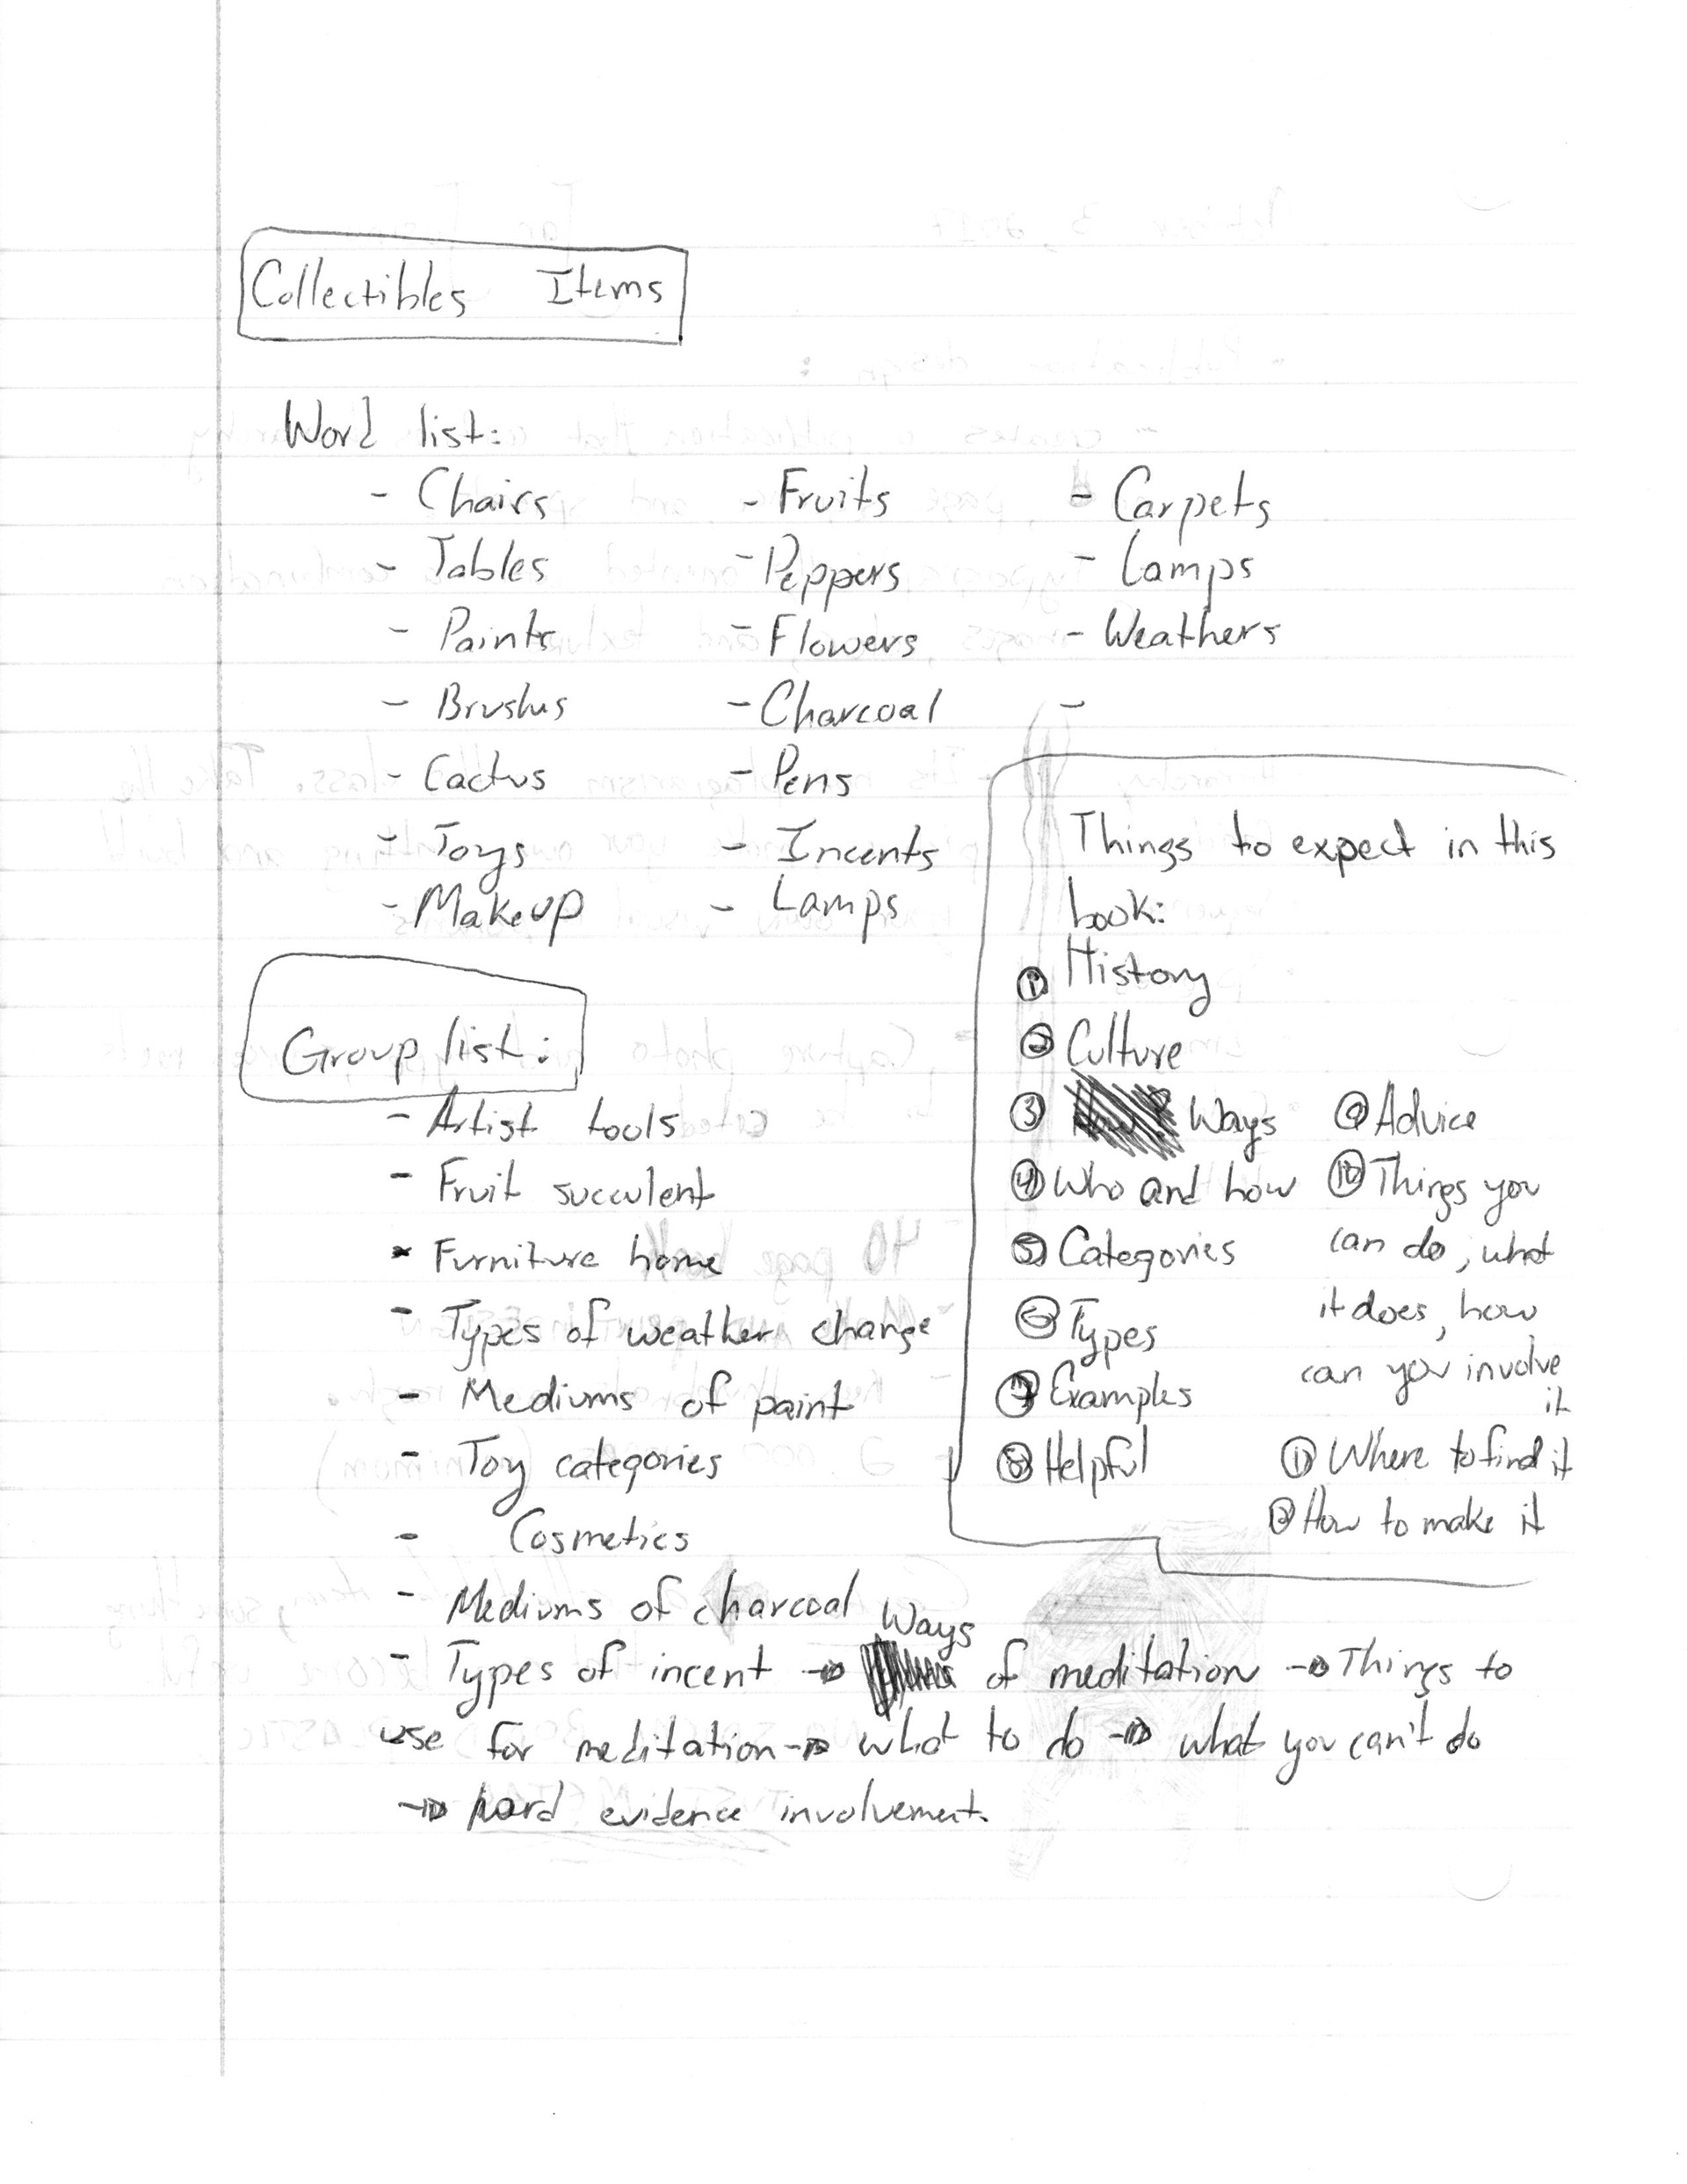 Collectibles Items
Word list:
- Chairs - Fruits - Carpets
- Tables - Peppers - Lamps
- Paints - Flowers - Weathers
- Brushes - Charcoal -
- Cactus - Pens
- Toys - Incents
- Makeup - Lamps
Things to expect in this
book:
① History
② Culture
③ Ways
④ Who and how
⑤ Categories
⑥ Types
⑦ Examples
⑧ Helpful
⑨ Advice
⑩ Things you
can do, what
it does, how
can you involve
it
⑪ Where to find it
⑫ How to make it
Group list:
- Artist tools
- Fruit succulent
- Furniture home
- Types of weather change
- Mediums of paint
- Toy categories
- Cosmetics
- Mediums of charcoal
- Types of incent → Ways of meditation → Things to
use for meditation → what to do → what you can't do
→ hard evidence involvement.